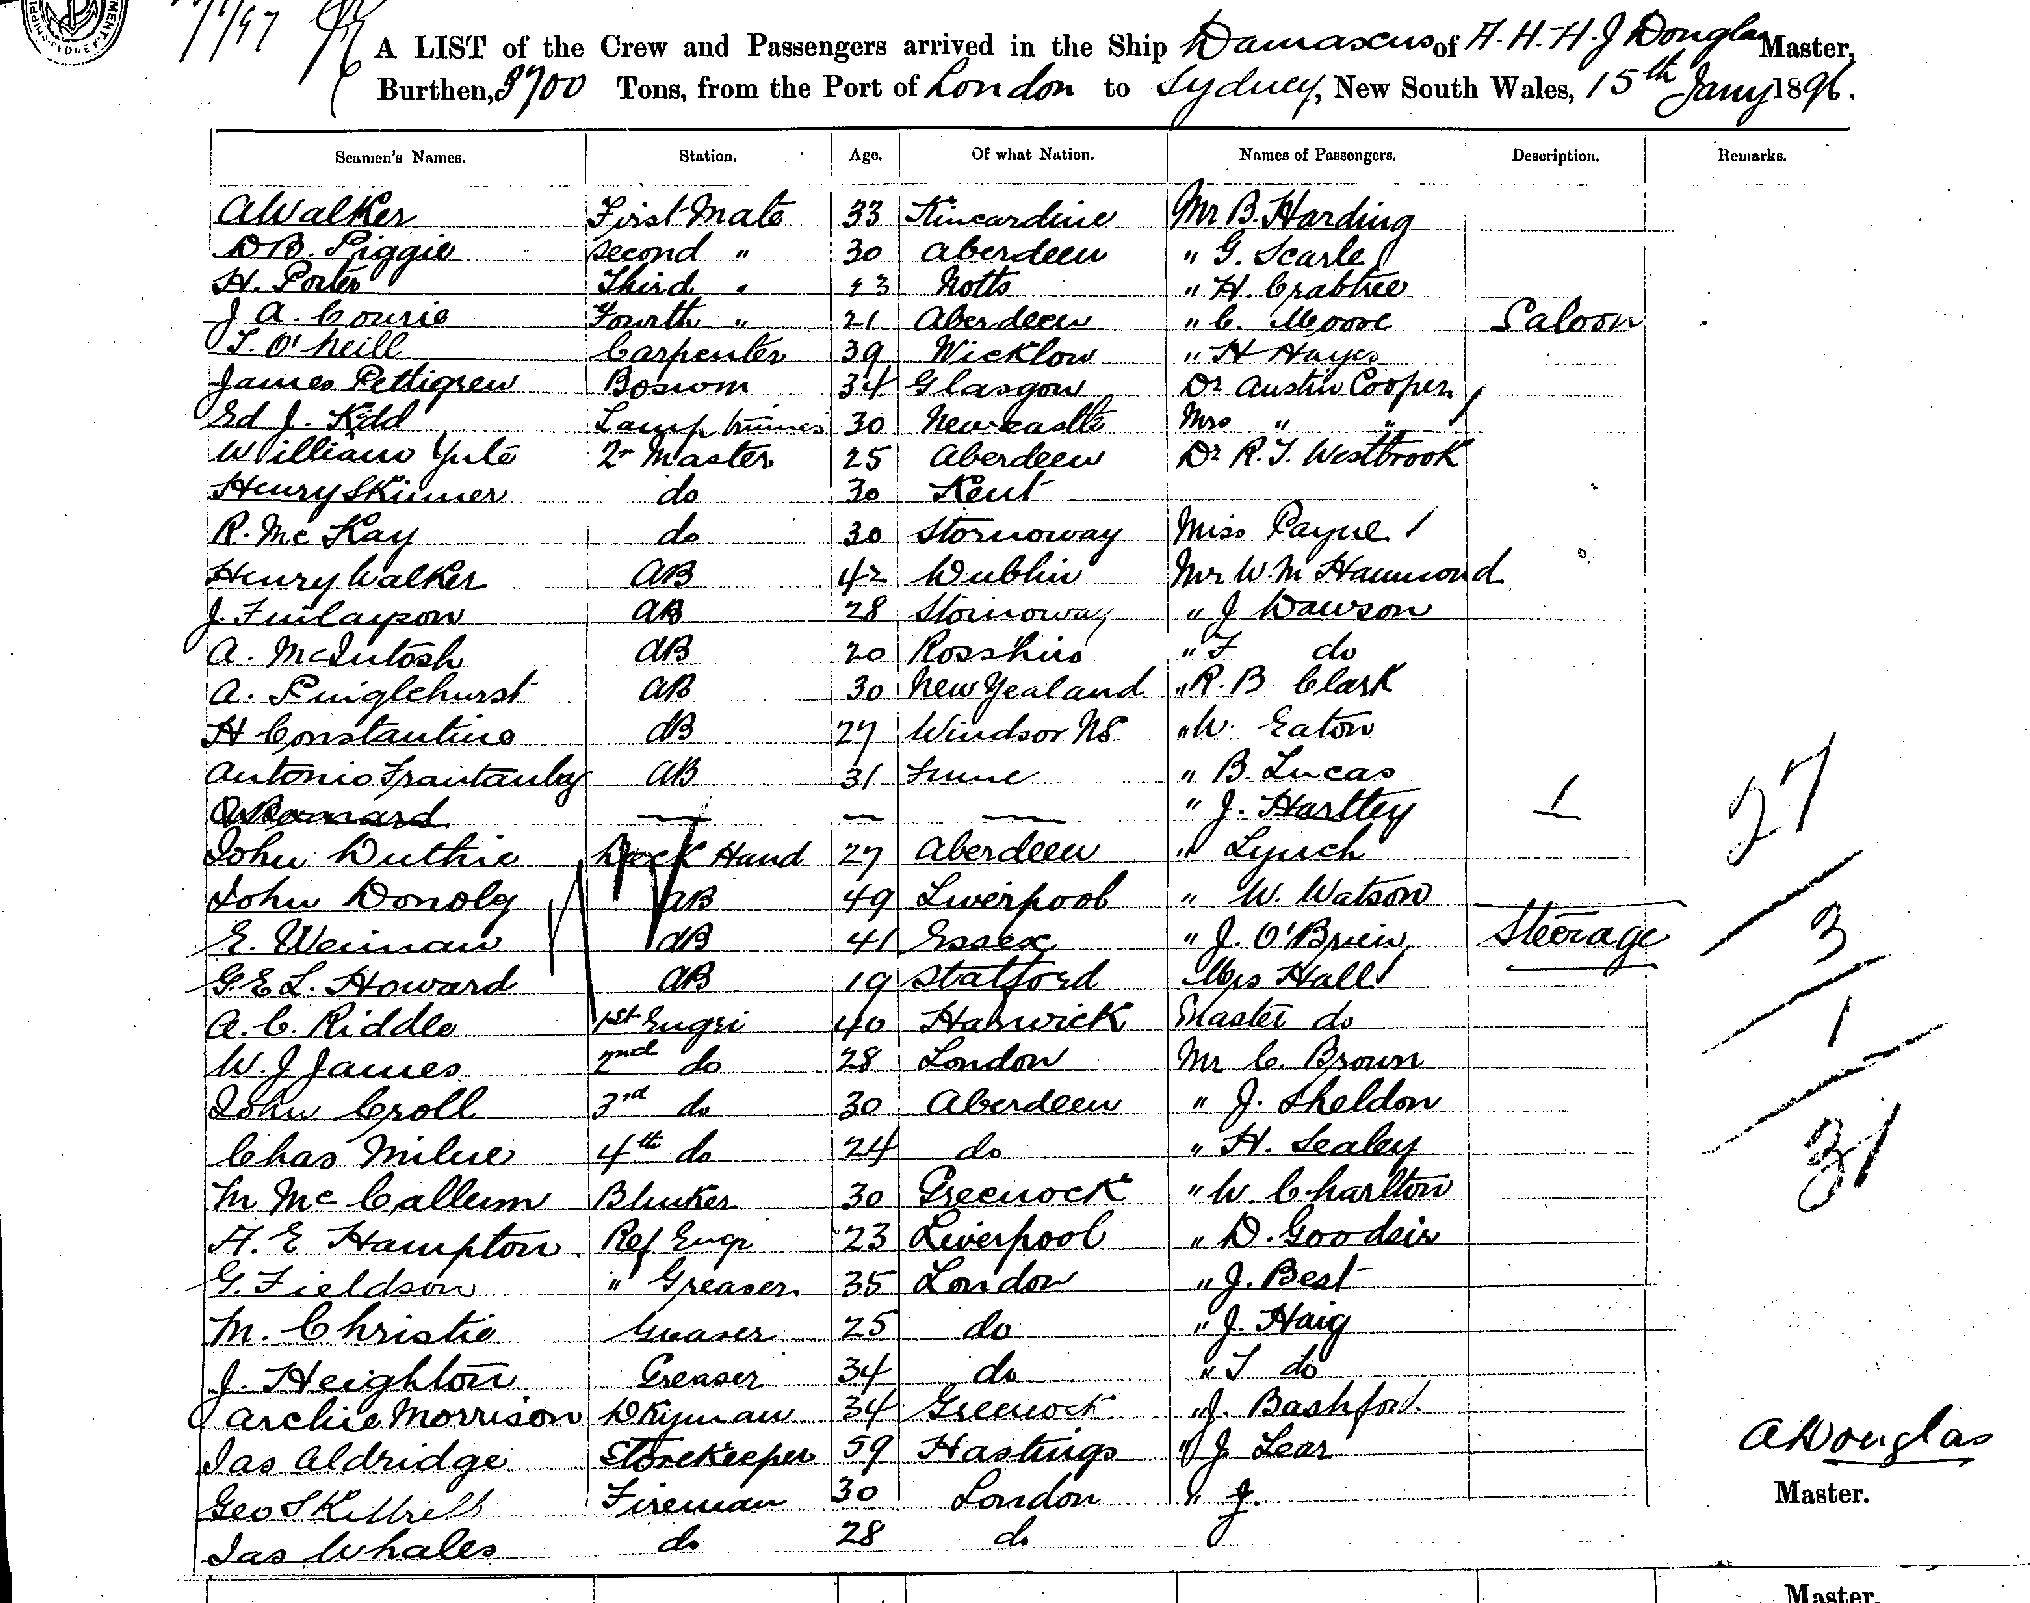 A LIST of the Crew and Passengers arrived in the Ship Damascus of A. H. H. J Douglas Master,
Burthen, 3700 Tons, from the Port of London to Sydney, New South Wales, 15th Jany 1896.
Seamen's Names. Station. Age. Of what Nation. Names of Passengers. Description. Remarks.
A Walker First Mate 33 Kincardine Mr B. Harding
D B. Piggie second " 30 Aberdeen " G. Searle
H. Porter Third " 23 Notts " H. Crabtree
J A. Courie Fourth " 21 Aberdeen " C. Moore Saloon
T. O'Neill Carpenter 39 Wicklow " H Hayes
James Pettigrew Boswn 34 Glasgow Dr Austin Cooper
Ed J. Kidd Lamp trimmer 30 Newcastle Mrs " "
William Yule 2r Master 25 Aberdeen Dr R. T. Westbrook
Henry Skinner do 30 Kent
R. Mc Kay do 30 Stornoway Miss Payne
Henry Walker AB 42 Dublin Mr W. M Hammond
J. Finlayson AB 28 Stornoway " J Dawson
A. McIntosh AB 20 Rosshire " F do
A. Ringlehurst AB 30 New Zealand " R. B Clark
H Constantine AB 27 Windsor NS " W. Eaton
Antonio AB 31 Fiume " B. Lucas
" J. Hartley 1
John Duthie Deck Hand 27 Aberdeen " Lynch
John Donoly AB 49 Liverpool " W. Watson
E. Weinan AB 41 Essex " J. O'Brien Steerage
G. E L. Howard AB 19 Statford Mrs Hall
A. C. Riddle 1st Engri 40 Harwick Master do
W. J James 2nd do 28 London Mr C. Brown
John Croll 3rd do 30 Aberdeen " J. Sheldon
Chas Milne 4th do 24 do " H. Sealey
M Mc Callum Blinker 30 Greenock " W Charlton
H. E Hampton Ref Engr 23 Liverpool " D. Goodsir
G. Fieldson " Greaser 35 London " J. Best
M. Christie Greaser 25 do " J. Haig
J. Heighton Greaser 34 do " T do
Archie Morrison Dkyman 34 Greenock " J. Bashford
Jas Aldridge Storekeeper 59 Hastings " J Lear
Geo Fireman 30 London " J.
Jas Whales do 28 do
27
3
1
31
A Douglas
Master.
Master.